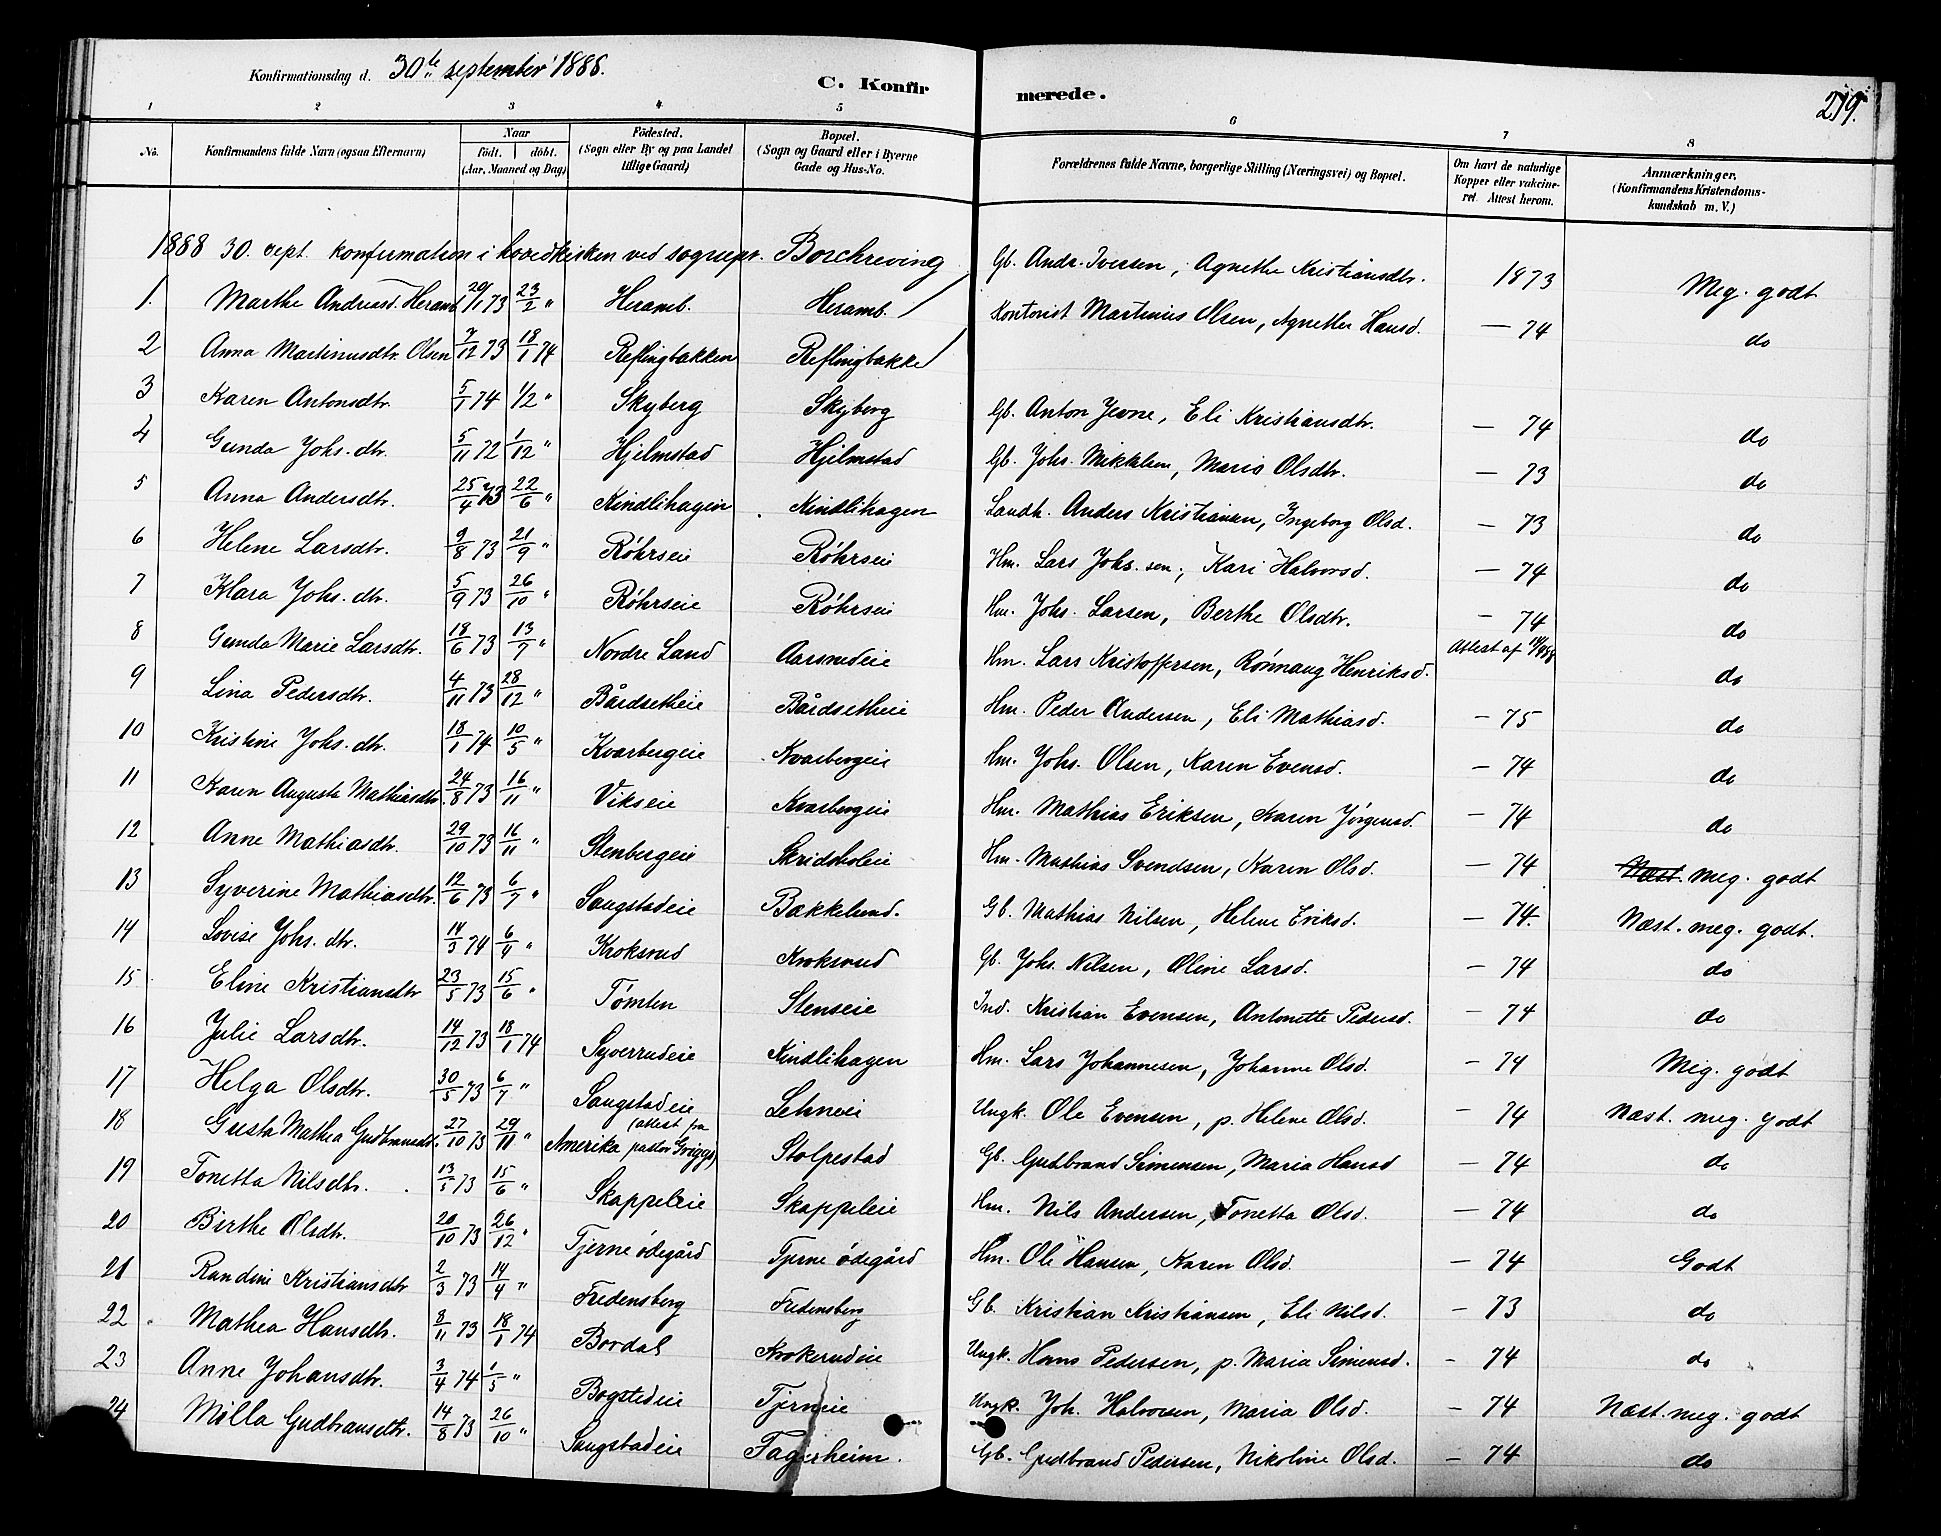 Konfirmationsdag d. 30te september 1888.
C. Konfirmerede.
219.
1 2 3 4 5 6 7 8
No. Konfirmandens fulde Navn (ogsaa Efternavn) Naar födt. döbt. (Aar, Maaned og Dag) Födested. (Sogn eller By og paa Landet tillige Gaard) Bopæl. (Sogn og Gaard eller i Byerne Gade og Hus-No. Forældrenes fulde Navne, borgerlige Stilling (Næringsvei) og Bopæl. Om havt de naturlige Kopper eller vakcineret. Attest herom. Anmærkninger. (Konfirmandens Kristendomskundskab m. V.)
1888 30. sept. konfirmation i hovedkirken ved sognepr. Borchreving
1. Marthe Andreasd. Heramb 20/1 73 23/2 " Heramb. Heramb. Gb. Andr. Iversen, Agnethe Kristiansdtr. 1873 Meg. godt
2 Anna Martinusdtr. Olsen 7/12 73 18/1 74 Reflingbakken Reflingbakke Kontorist Martinius Olsen, Agnethe Hansd. — 74 do
3 Karen Antonsdtr. 5/1 74 1/2 " Skyberg Skyberg Gb. Anton Jevne, Eli Kristiansdtr. — 74 do
4 Gunda Johs. dtr. 5/11 72 1/12 " Hjelmstad Hjelmstad Gb. Johs. Mikkelsen, Maria Olsdtr. — 73 do
5 Anna Andersdtr. 25/4 73 22/6 " Kindlihagen Kindlihagen Landh. Anders Kristiansen, Ingeborg Olsd. — 73 do
6 Helene Larsdtr. 9/8 73 21/9 " Röhrseie Röhrseie Hm. Lars Johs. sen, Kari Halvorsd. — 74 do
7 Klara Johs. dtr. 5/9 73 26/10 " Röhrseie Röhrseie Hm. Johs. Larsen, Berthe Olsdtr. — 74 do
8 Gunda Marie Larsdtr. 18/6 73 13/7 " Nordre Land Aarsrudeie Hm. Lars Kristoffersen, Rönnaug Henriksd. Attest af do
9 Lina Pedersdtr. 4/11 73 28/12 " Bårdsetheie Bårdsetheie Hm. Peder Andersen, Eli Mathiasd. — 75 do
10 Kristine Johs. dtr. 18/1 74 10/5 " Kvarbergeie Kvarbergeie Hm. Johs. Olsen, Karen Evensd. — 74 do
11 Karen Augusta Mathiasdtr. 24/8 73 16/11 " Vikseie Kvarbergeie Hm. Mathias Eriksen, Karen Jörgensd. — 74 do
12 Anne Mathiasdtr. 29/10 73 16/11 " Stenbergeie Skridsholeie Hm. Mathias Svendsen, Karen Olsd. — 74 Næst. meg. godt
13 Syverine Mathiasdtr. 12/6 73 6/7 " Saugstadeie Bakkelund. Gb. Mathias Nilsen, Helene Eriksd. — 74. Næst. meg. godt.
14 Lovise Johs. dtr. 14/3 74 6/4 " Kroksrud Kroksrud Gb. Johs. Nilsen, Oline Larsd. — 74 do
15 Eline Kristiansdtr 23/5 73 15/6 " Tömten Stenseie Ind. Kristian Evensen, Antonette Pedersd. — 74 do
16 Julie Larsdtr. 14/12 73 18/1 74 Syverrudeie Kindlihagen Hm. Lars Johannesen, Johanne Olsd. — 74 Meg. godt
17 Helga Olsdtr. 30/5 73 6/7 " Saugstadeie Lehneie Ungk. Ole Evensen, p. Helene Olsd. — 74 Næst. meg. godt
18 Gusta Mathea Gudbransdt. 27/10 73 29/11 " Amerika (attest fra pastor Griggs) Stolpestad Gb. Gudbrand Simensen, Maria Hansd — 74 do
19 Tonetta Nilsdtr. 13/5 73 15/6 " Skappeleie Skappeleie Hm. Nils Andersen, Tonetta Olsd. — 74 do
20 Birthe Olsdtr. 20/10 73 26/12 " Tjerne ödegård Tjerne ödegård Hm. Ole Hansen, Karen Olsd. — 74 Godt
21 Randine Kristiansdtr 2/3 73 14/4 " Fredensberg Fredensberg Gb. Kristian Kristiansen, Eli Nilsd. — 73 do
22 Mathea Hansdtr. 8/11 73 18/1 74 Bordal Krokerudeie Ungk. Hans Pedersen, p. Maria Simensd. — 74 do
23 Anne Johansdtr. 3/4 74 1/5 " Bogstedeie Tjerneie Ungk. Joh. Halvorsen, Maria Olsd. — 74 Næst. meg. godt
24 Mölla Gudbransdtr. 14/8 73 26/10 " Saugstadeie Fagerheim. Gb. Gudbrand Pedersen, Nikoline Olsd. — 74 do